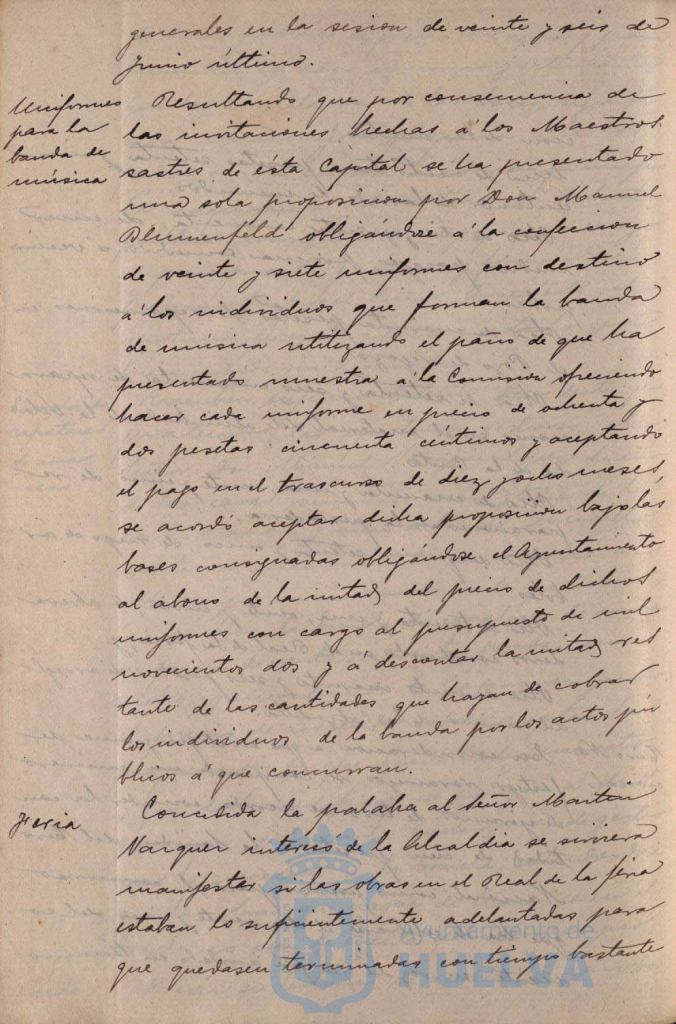 generales en la sesion de veinte y seis de
Junio último.
Uniformes
para la
banda de
música
Resultando que por consecuencia de
las invitaciones hechas á los Maestros
sastres de ésta Capital se ha presentado
una sola proposicion por Don Manuel
Blumenfeld obligándose á la confeccion
de veinte y siete uniformes con destino
á los individuos que forman la banda
de música utilizando el paño de que ha
presentado muestra á la Comision ofreciendo
hacer cada uniforme en precio de ochenta y
dos pesetas cincuenta céntimos y aceptando
el pago en el trascurso de diez y ocho meses,
se acordó aceptar dicha proposicion bajo las
bases consignadas obligándose el Ayuntamiento
al abono de la mitad del precio de dichos
uniformes con cargo al presupuesto de mil
novecientos dos y á descontar la mitad res
tante de las cantidades que hayan de cobrar
los individuos de la banda por los actos pú
blicos á que concurran.
Feria
Concedida la palabra al Señor Martin
Vazquez interesó de la Alcaldia se sirviera
manifestar si las obras en el Real de la feria
estaban lo suficientemente adelantadas para
que quedasen terminadas con tiempo bastante
Ayuntamiento de
HUELVA